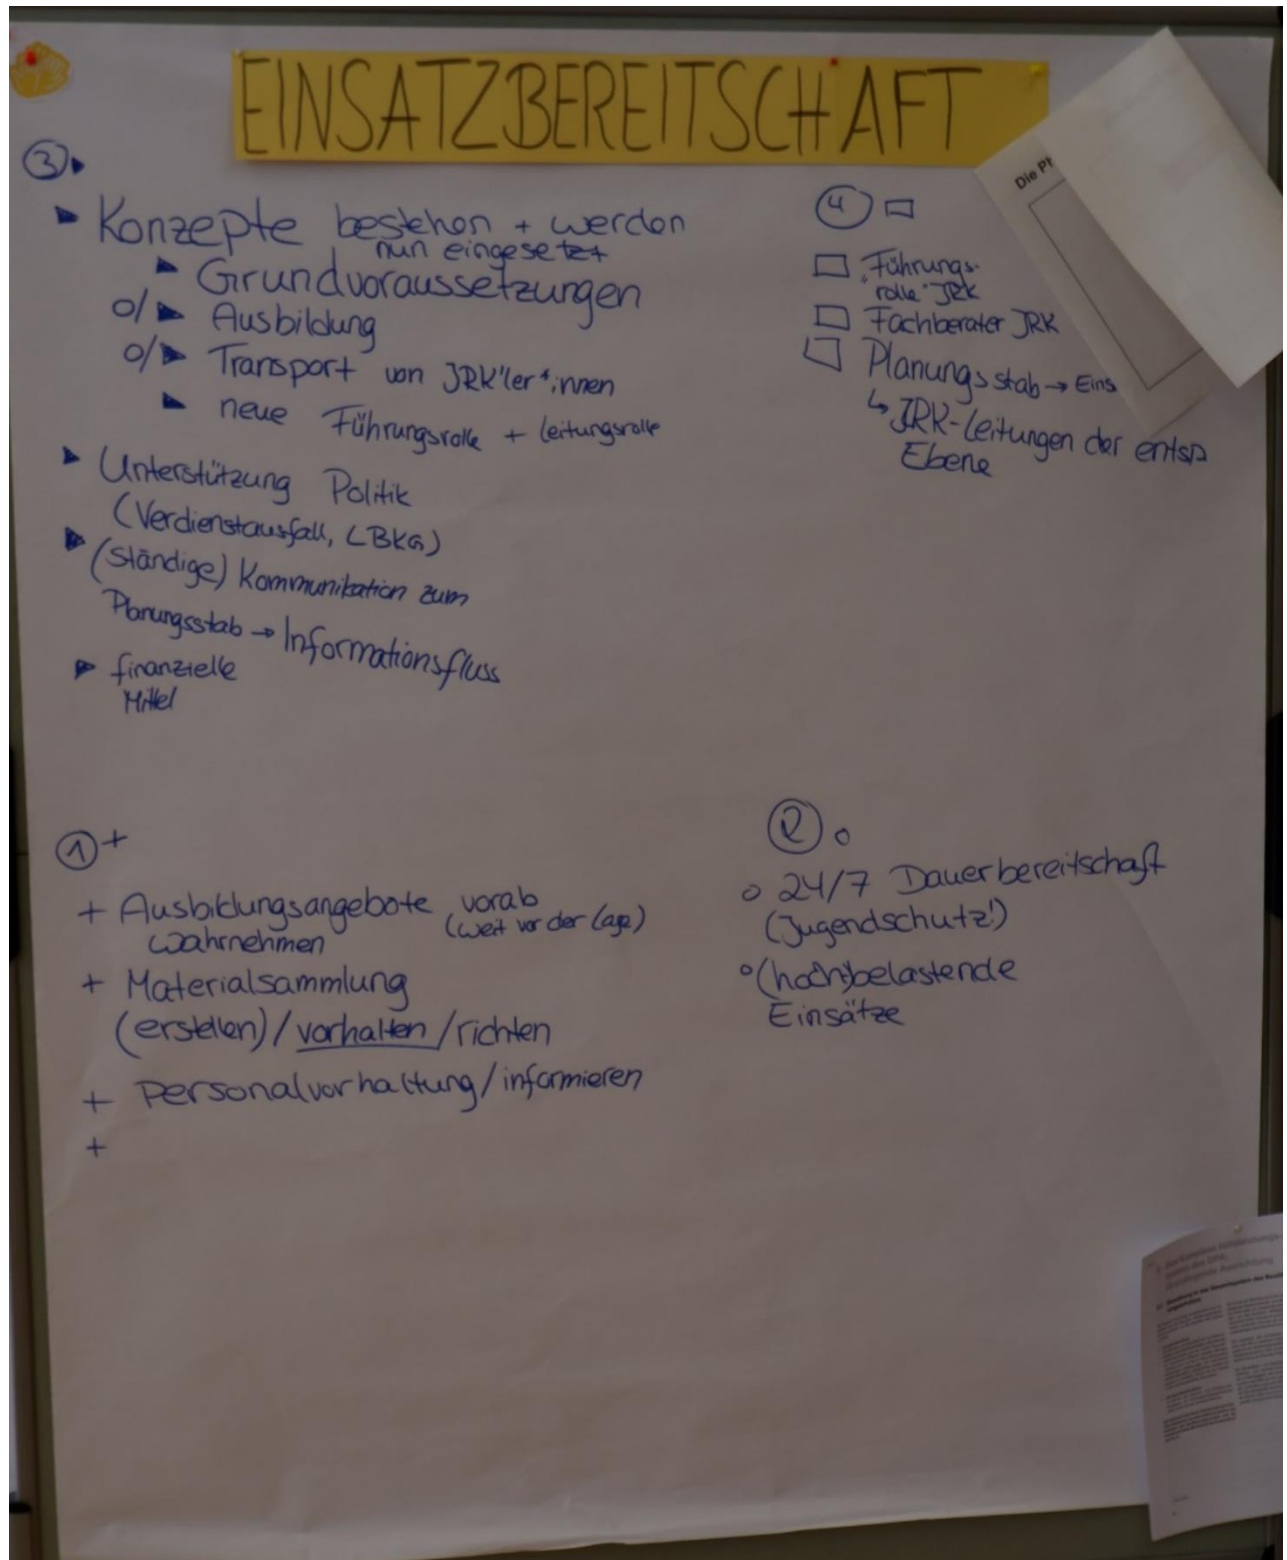 EINSATZBEREITSCHAFT
③ ▸
▸ Konzepte bestehen + werden
nun eingesetzt
▸ Grundvoraussetzungen
o/▸ Ausbildung
o/▸ Transport von JRK'ler*innen
▸ neue Führungsrolle + Leitungsrolle
▸ Unterstützung Politik
(Verdienstausfall, LBKG)
▸ (Ständige) Kommunikation zum
Planungsstab → Informationsfluss
▸ finanzielle
Mittel
④ ▭
▭ "Führungs-
rolle" JRK
▭ Fachberater JRK
▭ Planungsstab → Eins
↳ JRK-Leitungen der entsp
Ebene
Die Ph
① +
+ Ausbildungsangebote vorab
wahrnehmen (weit vor der Lage)
+ Materialsammlung
(erstellen) / vorhalten / richten
+ Personalvorhaltung / informieren
+
② o
o 24/7 Dauerbereitschaft
(Jugendschutz!)
o (hoch)belastende
Einsätze